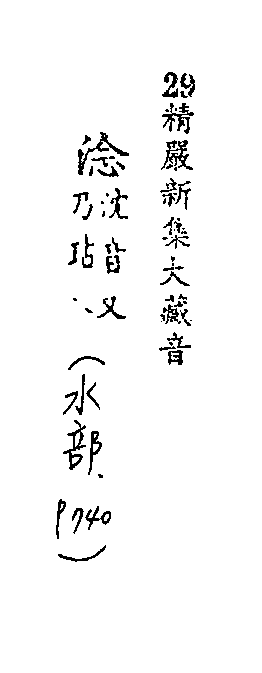 29精嚴新集大藏音
淰沈音又乃玷、、(水部、P740)